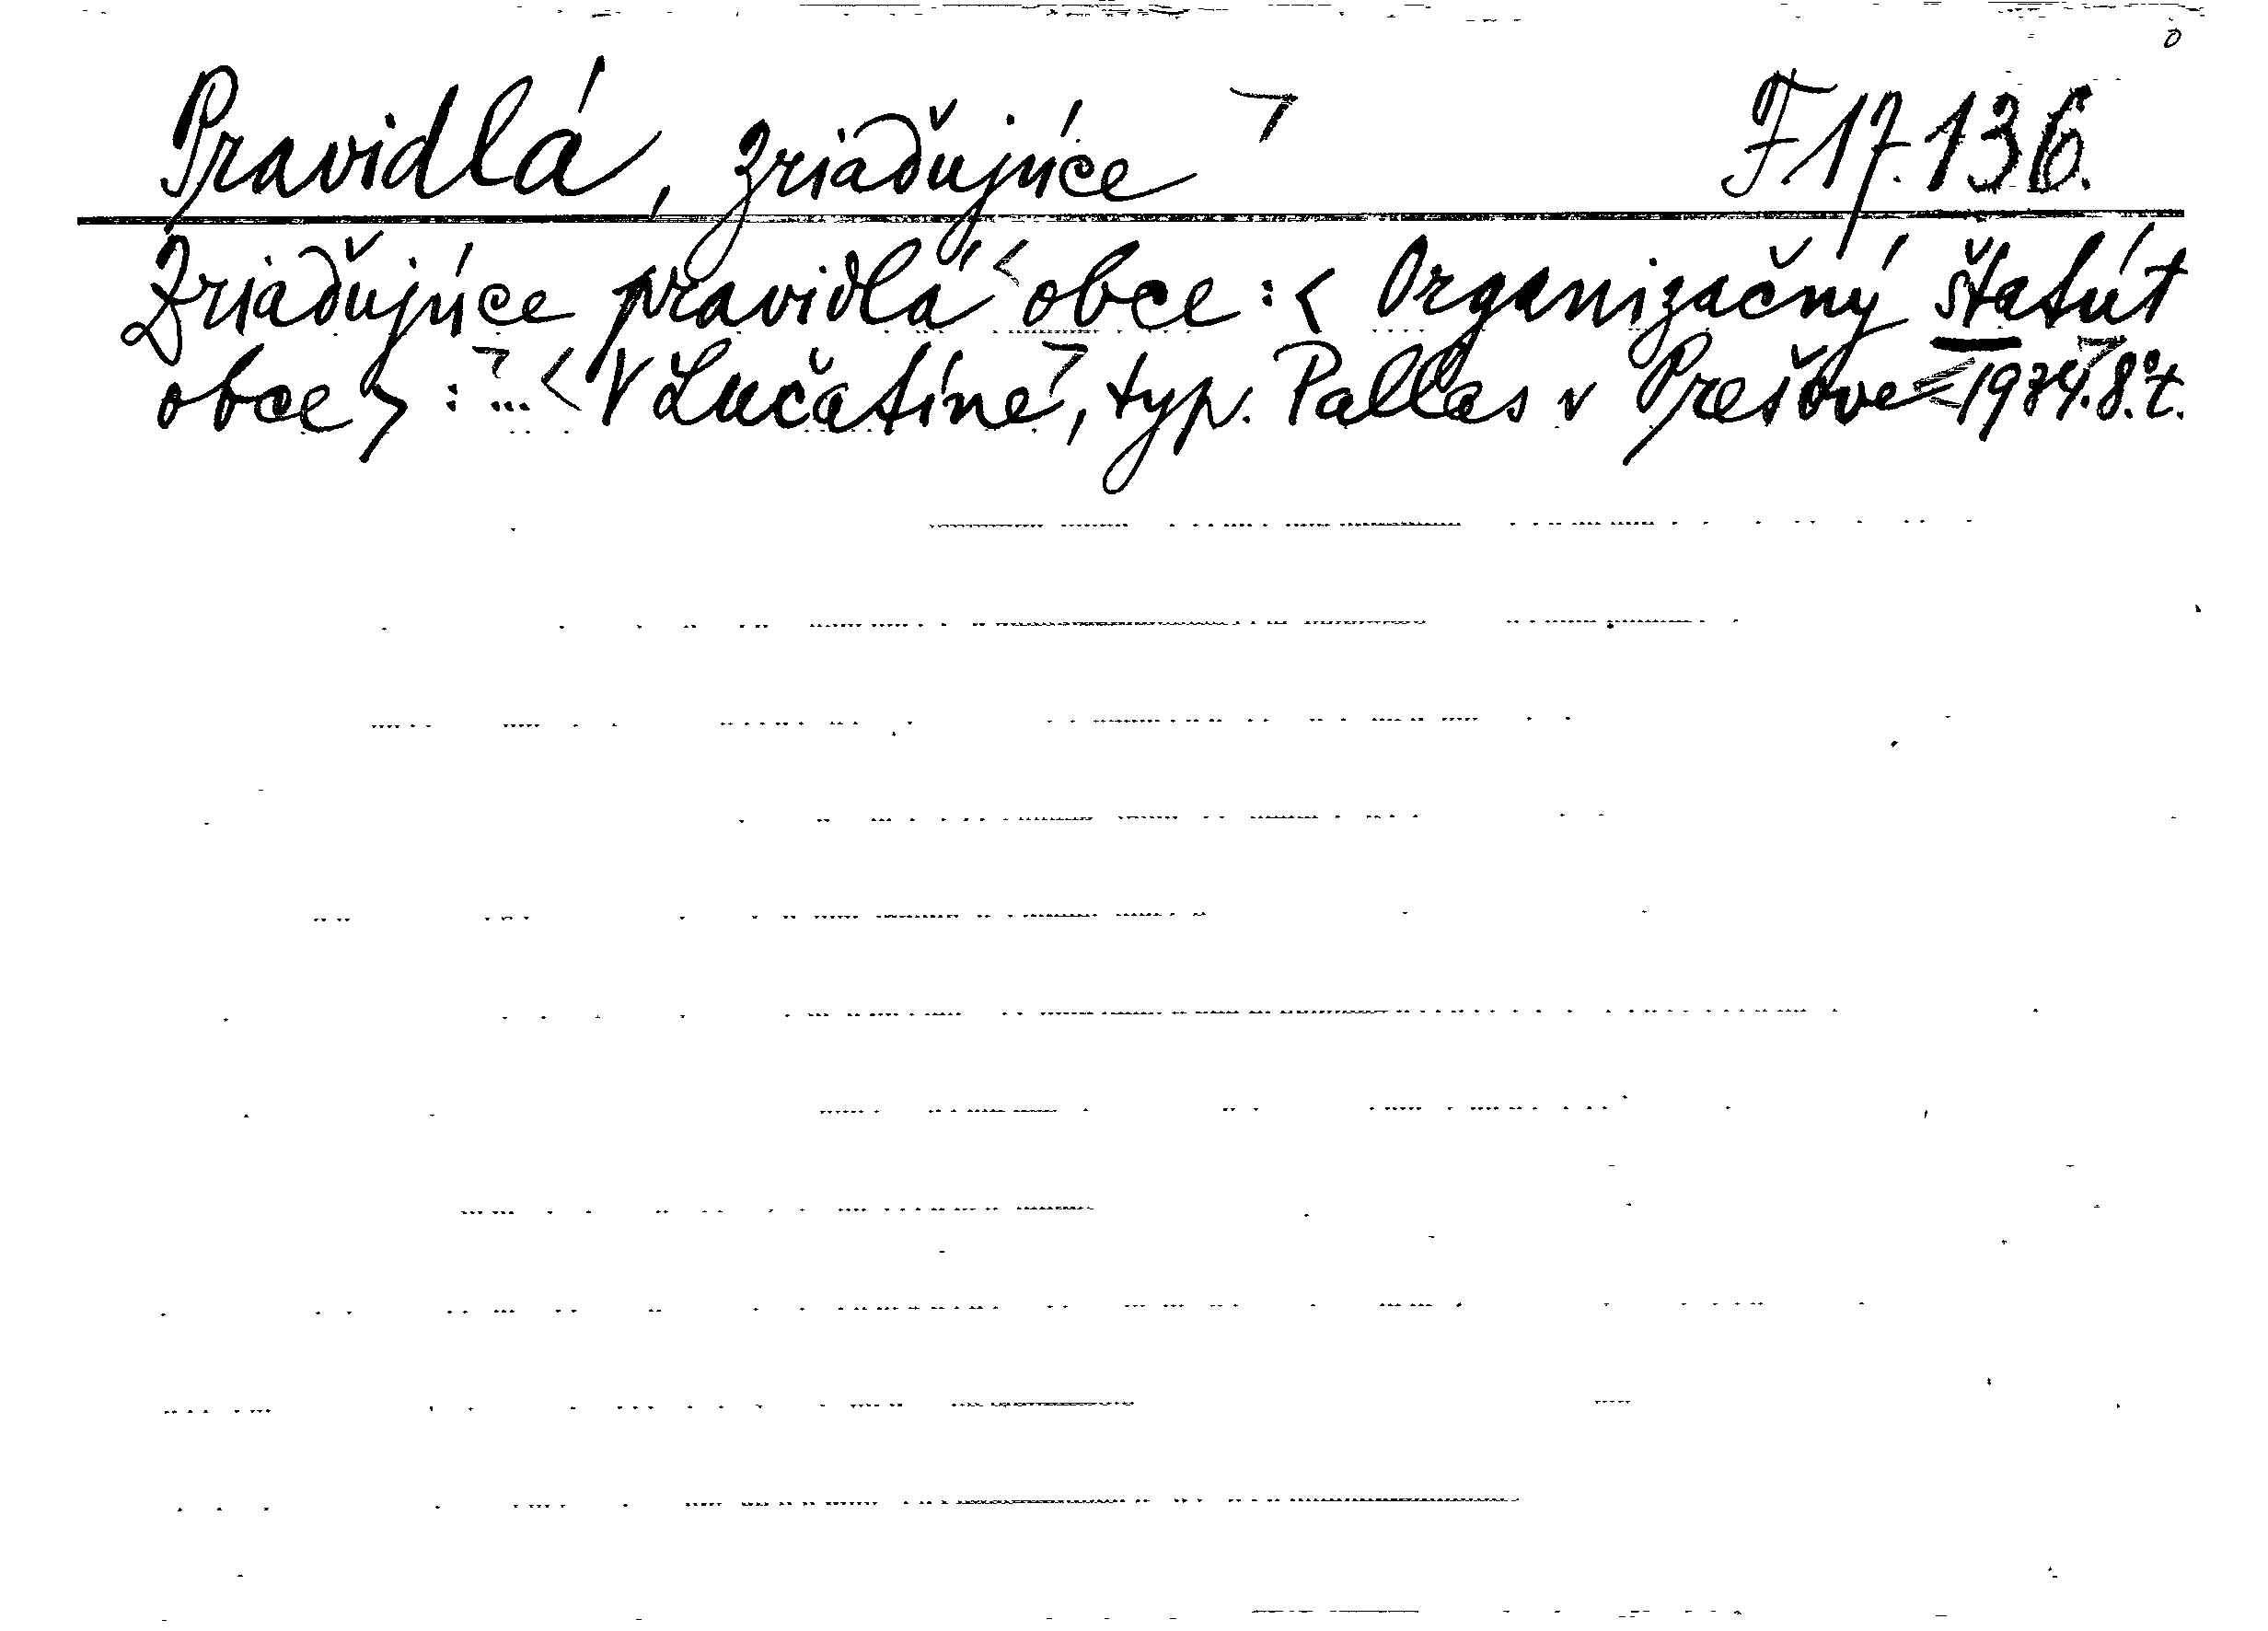 Pravidlá, zriaďujúce ⌝ F 17.136.
Zriaďujúce pravidlá < obce : < Organizačný štatút
obce > : ⌝ ... < V Lučatíne ⌝, typ. Pallas v Prešove 1934. 8°. t.